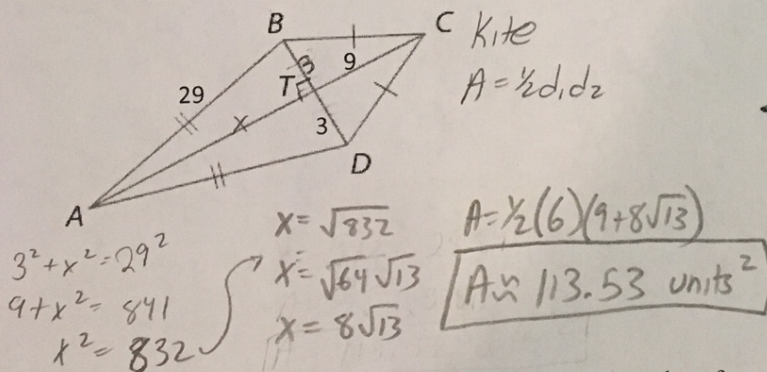 B
C
Kite
A = ½d₁d₂
9
3
T
29
x
3
D
A
3² + x² = 29²
9 + x² = 841
x² = 832
x = √832
x = √64 √13
x = 8√13
A = ½(6)(9+8√13)
A ≈ 113.53 units²